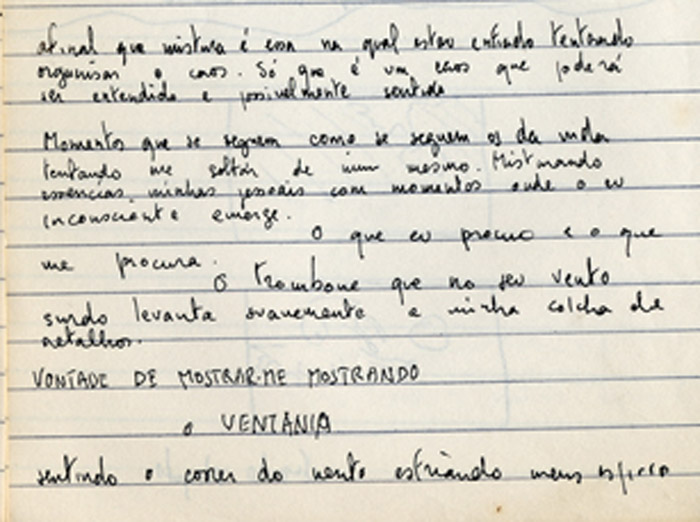 afinal que mistura é essa na qual estou entrado tentando
organisar o caos. Só que é um caos que poderá
ser entendido e possivelmente sentido
Momentos que se seguem como se seguem os da vida
tentando me soltar de mim mesmo. Misturando
essências minhas pessoais com momentos onde o eu
inconsciente emerge.
O que eu procuro é o que
me procura.
O trombone que no seu vento
surdo levanta suavemente a minha colcha de
retalhos.
VONTADE DE MOSTRAR-ME MOSTRANDO
a VENTANIA
sentindo o correr do vento esfriando meus